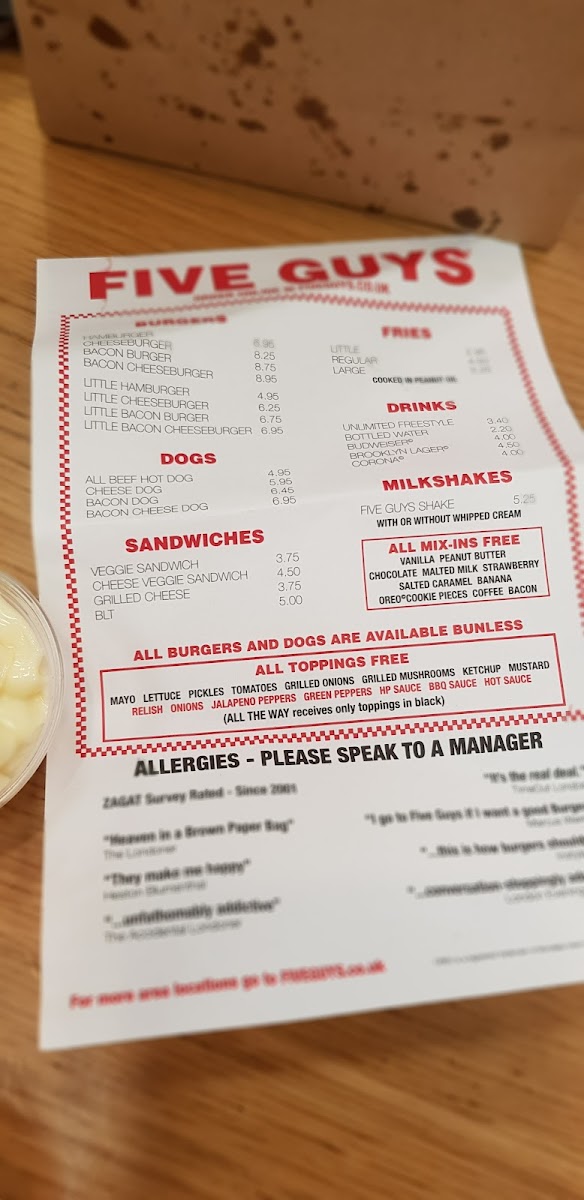 FIVE GUYS
ORDER ONLINE @ FIVEGUYS.CO.UK
BURGERS
HAMBURGER 6.95
CHEESEBURGER 8.25
BACON BURGER 8.75
BACON CHEESEBURGER 8.95
LITTLE HAMBURGER 4.95
LITTLE CHEESEBURGER 6.25
LITTLE BACON BURGER 6.75
LITTLE BACON CHEESEBURGER 6.95
DOGS
ALL BEEF HOT DOG 4.95
CHEESE DOG 5.95
BACON DOG 6.45
BACON CHEESE DOG 6.95
SANDWICHES
VEGGIE SANDWICH 3.75
CHEESE VEGGIE SANDWICH 4.50
GRILLED CHEESE 3.75
BLT 5.00
FRIES
LITTLE
REGULAR
LARGE
COOKED IN PEANUT OIL
DRINKS
UNLIMITED FREESTYLE 3.40
BOTTLED WATER 2.20
BUDWEISER® 4.00
BROOKLYN LAGER® 4.50
CORONA® 4.00
MILKSHAKES
FIVE GUYS SHAKE 5.25
WITH OR WITHOUT WHIPPED CREAM
ALL MIX-INS FREE
VANILLA PEANUT BUTTER
CHOCOLATE MALTED MILK STRAWBERRY
SALTED CARAMEL BANANA
OREO®COOKIE PIECES COFFEE BACON
ALL BURGERS AND DOGS ARE AVAILABLE BUNLESS
ALL TOPPINGS FREE
MAYO LETTUCE PICKLES TOMATOES GRILLED ONIONS GRILLED MUSHROOMS KETCHUP MUSTARD
RELISH ONIONS JALAPENO PEPPERS GREEN PEPPERS HP SAUCE BBQ SAUCE HOT SAUCE
(ALL THE WAY receives only toppings in black)
ALLERGIES - PLEASE SPEAK TO A MANAGER
ZAGAT Survey Rated - Since 2001
"Heaven in a Brown Paper Bag"
The Londoner
"They make me happy"
Heston Blumenthal
"...unfathomably addictive"
The Accidental Londoner
"It's the real deal."
TimeOut London
"I go to Five Guys if I want a good burger
"...this is how burgers should
"...conversation-stoppingly
London
For more area locations go to FIVEGUYS.co.uk